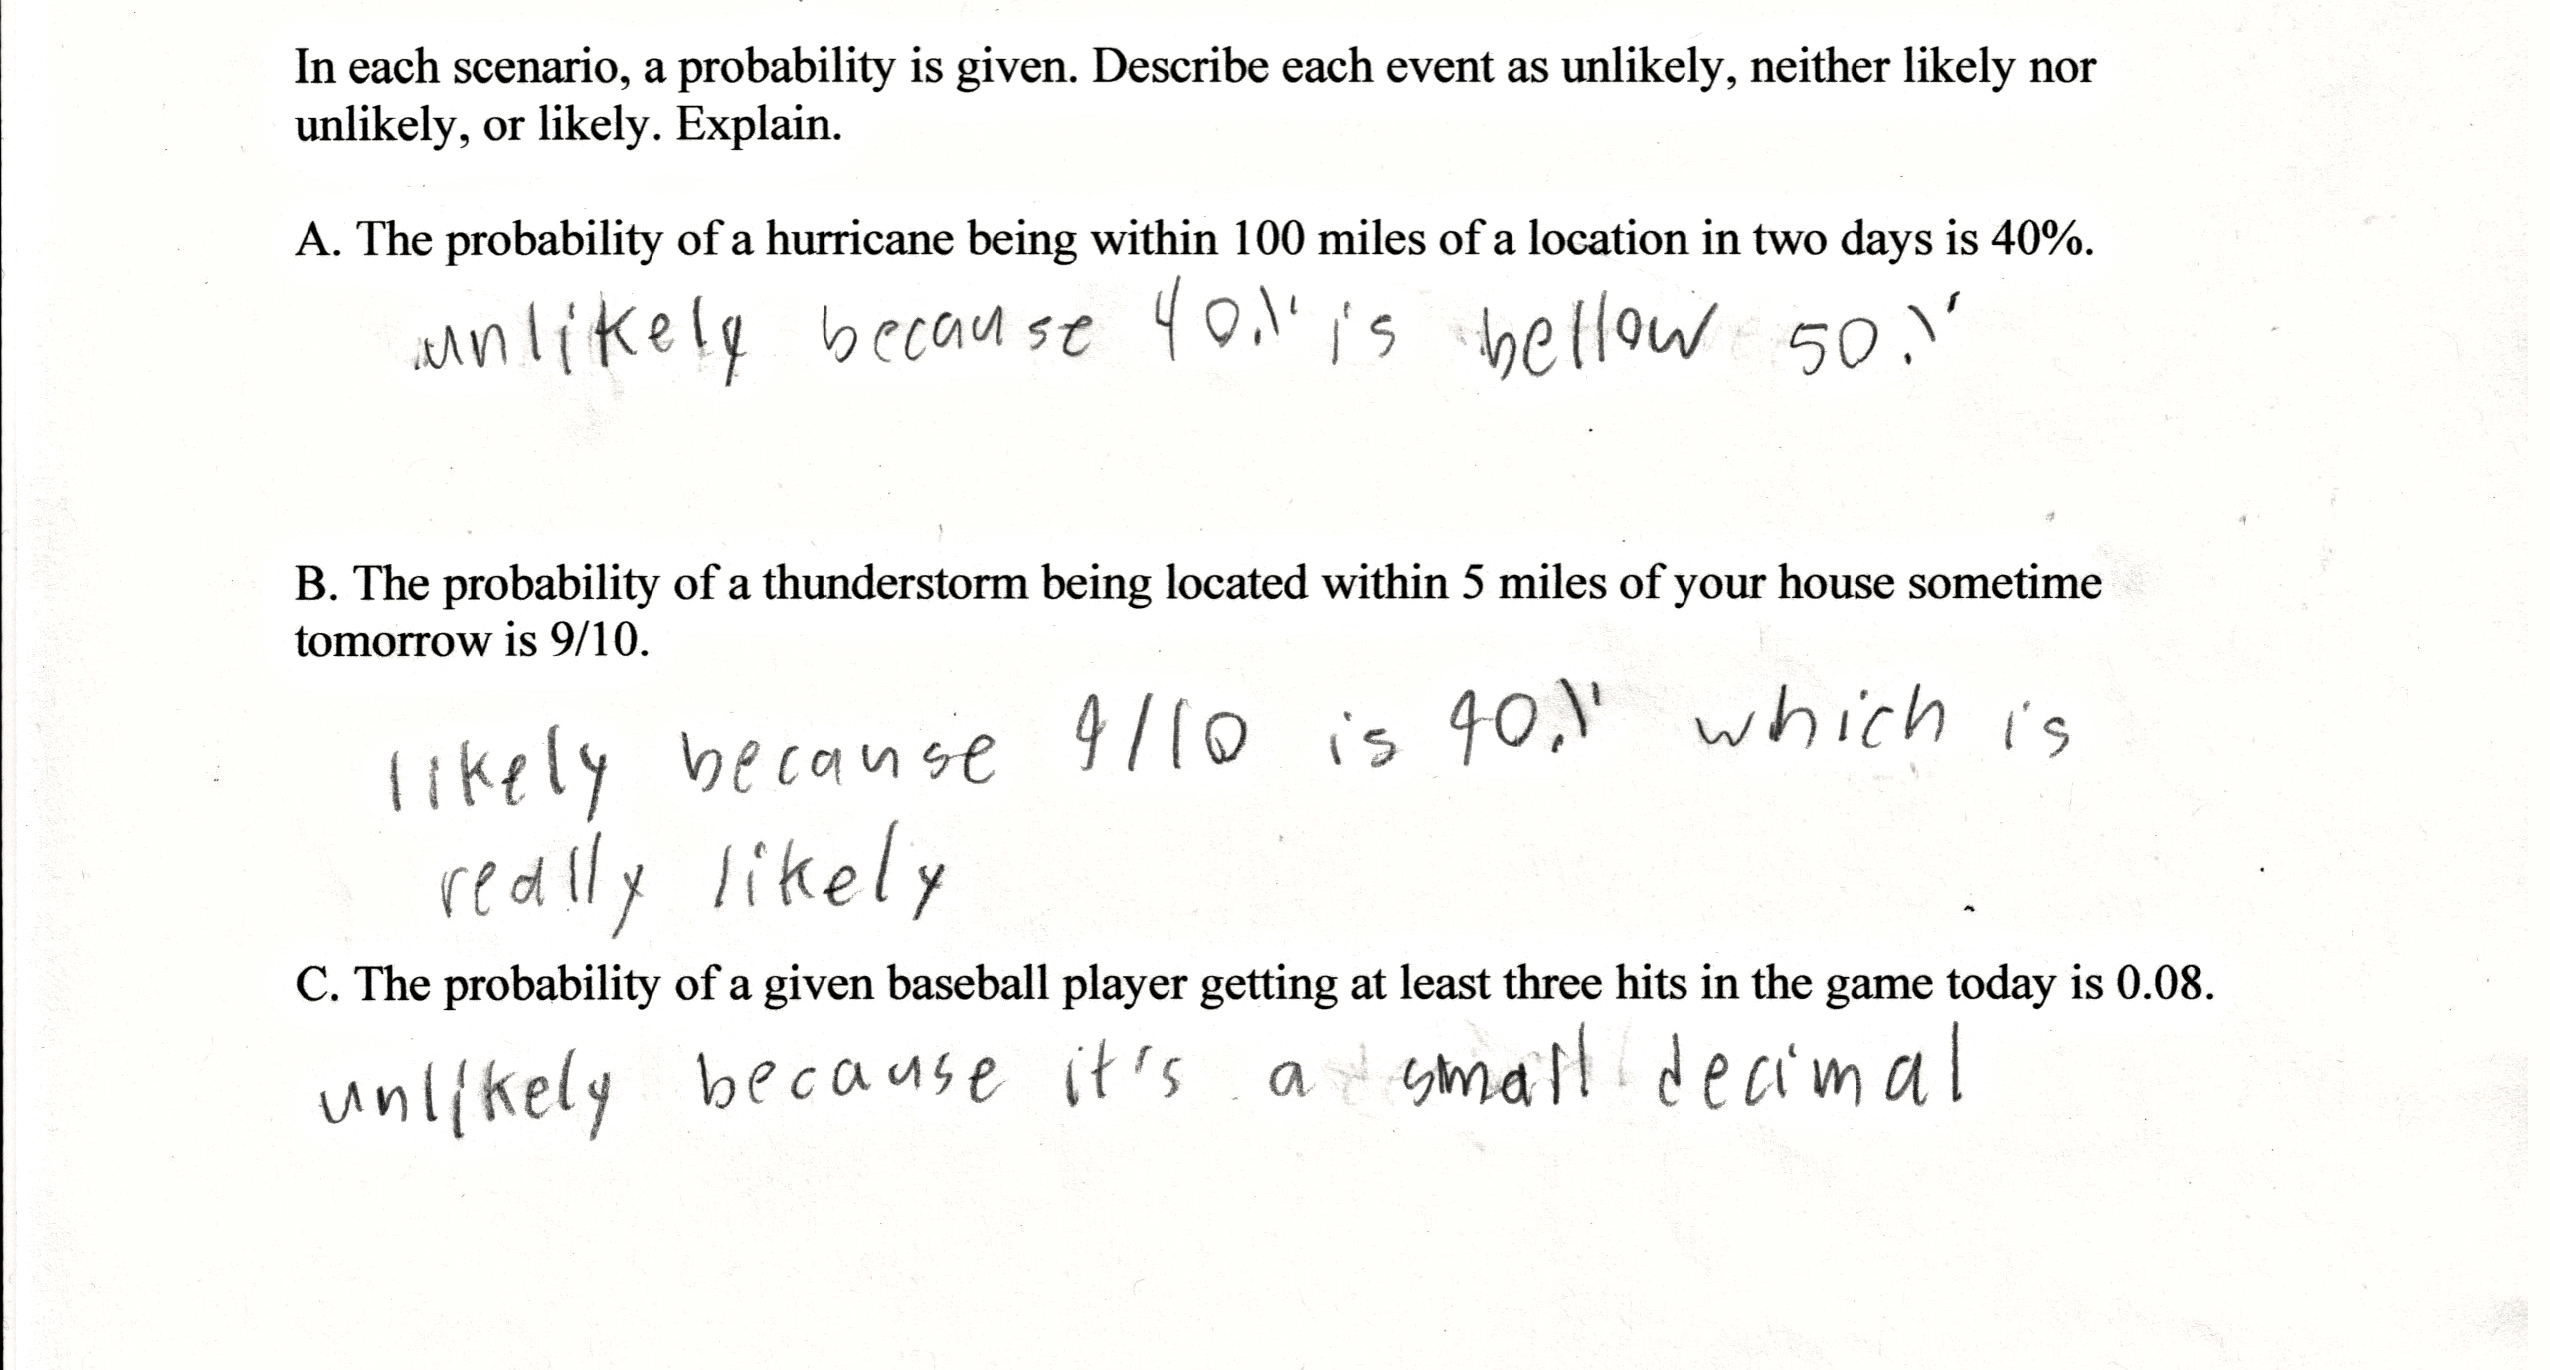 In each scenario, a probability is given. Describe each event as unlikely, neither likely nor
unlikely, or likely. Explain.
A. The probability of a hurricane being within 100 miles of a location in two days is 40%.
unlikely because 40% is bellow 50%
B. The probability of a thunderstorm being located within 5 miles of your house sometime
tomorrow is 9/10.
likely because 9/10 is 90% which is
really likely
C. The probability of a given baseball player getting at least three hits in the game today is 0.08.
unlikely because it's a small decimal